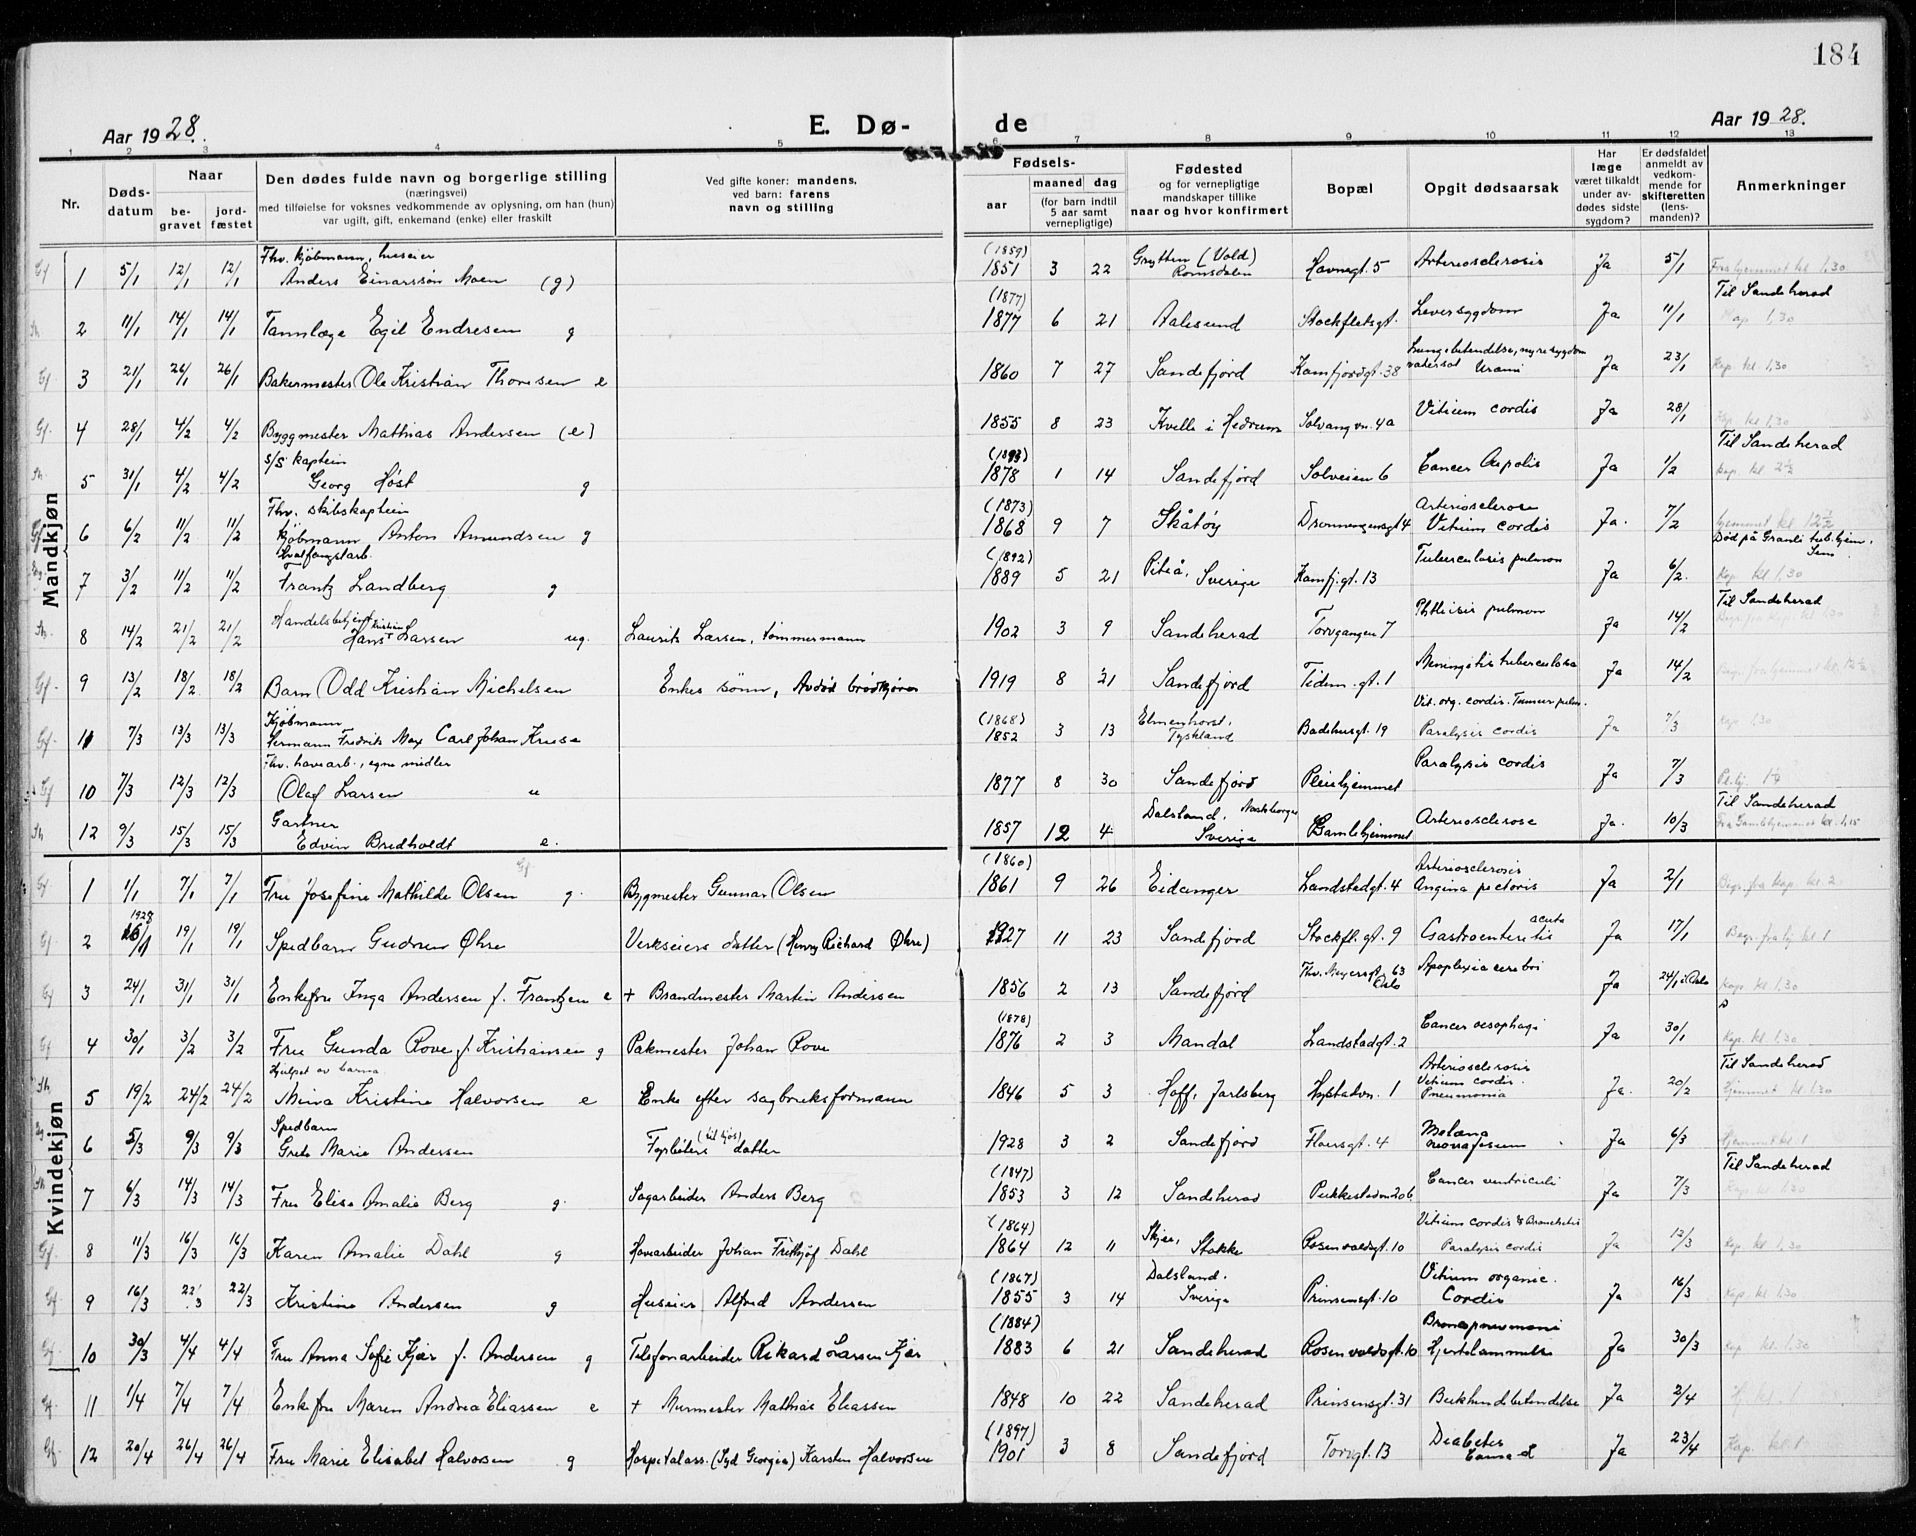 184
Aar 1928.
E. Dø-
de
Aar 1928.
1 2 3 4 5 6 7 8 9 10 11 12 13
Nr.
Døds-
datum
Naar
be-
gravet
jord-
fæstet
Den dødes fulde navn og borgerlige stilling
(næringsvei)
med tilføielse for voksnes vedkommende av oplysning, om han (hun)
var ugift, gift, enkemand (enke) eller fraskilt
Ved gifte koner: mandens,
ved barn: farens
navn og stilling
Fødsels-
aar
maaned dag
(for barn indtil
5 aar samt
vernepligtige)
Fødested
og for vernepligtige
mandskaper tillike
naar og hvor konfirmert
Bopæl
Opgit dødsaarsak
Har
læge
været tilkaldt
under av-
dødes sidste
sygdom?
Er dødsfaldet
anmeldt av
vedkom-
mende for
skifteretten
(lens-
manden)?
Anmerkninger
Mandkjøn
Fhv. kjøbmann, huseier (1859) Grytten (Vold)
1 5/1 12/1 12/1 Anders Einarssøn Moen (g) 1851 3 22 Romsdalen Havnegt. 5 Arteriosclerosis Ja 5/1 Fra hjemmet kl 1,30
(1877) Til Sandeherad
2 11/1 14/1 14/1 Tannlæge Egil Endresen g 1877 6 21 Aalesund Stockfletsgt. Leversygdom Ja 11/1 Kap. 1,30
Lungebetendelse, nyresygdom
3 21/1 26/1 26/1 Bakermester Ole Kristian Thoresen e 1860 7 27 Sandefjord Kamfjordgt. 38 Uræmi Ja 23/1 Kap. kl. 1,30
4 28/1 4/2 4/2 Byggmester Mathias Andersen (e) 1855 8 23 Kvelle i Hedrum Solvangvn. 4a Vitium cordis Ja 28/1 Kap. kl 1,30
S/S kaptein Til Sandeherad
5 31/1 4/2 4/2 Georg Høst g 1878 1 14 Sandefjord Solveien 6 Cancer Ja 1/2 Kap. kl 2½
Fhv. skibskaptein (1873) Arteriosclerose
6 6/2 11/2 11/2 Kjøbmann Anton Amundsen g 1868 9 7 Skåtøy Dronningensgt 4 Vitium cordis Ja. 7/2 hjemmet kl. 12½
Hvalfangstarb. (1892) Død på Granli tub.hjem,
7 3/2 11/2 11/2 Frantz Landberg g 1889 5 21 Piteå, Sverige Kamfj.gt. 13 Tuberculosis pulmon Ja 6/2. Kap. kl 1,30
Handelsbetjent Kristian Til Sandeherad
8 14/2 21/2 21/2 Hans Larsen ug. Laurits Larsen, tømmermann 1902 3 9 Sandeherad Torvgangen 7 Phthisis pulmon Ja 14/2
9 13/2 18/2 18/2 Barn Odd Kristian Michelsen Enkes sønn, Avdød brødkjører 1919 8 21 Sandefjord Tidem. gt. 1 Meningitis tuberculosa Ja 14/2
Kjøbmann (1868) Elmenhorst, Vit. org. cordis. Tumor pulm.
11 7/3 13/3 13/3 Hermann Fredrik Max Carl Johan Kruse 1852 3 13 Tyskland Badehusgt. 19 Paralysis cordis Ja 7/3 Kap. 1,30
Fhv. havearb., egne midler
10 7/3 12/3 12/3 Olaf Larsen u 1877 8 30 Sandefjord Pleiehjemmet Paralysis cordis Ja 7/3
Gartner Dalsland, Til Sandeherad
12 9/3 15/3 15/3 Edvin Bredholdt e. 1857 12 4 Sverige Gamlehjemmet Arteriosclerose Ja. 10/3 Fra Gamlehjemmet kl. 1,15
Kvindekjøn
(1860) Arteriosclerosis
1 1/1 7/1 7/1 Fru Josefine Mathilde Olsen g. Bygmester Gunnar Olsen 1861 9 26 Eidanger Landstadgt. 4 Angina pectoris Ja 2/1 Begr. fra kap. kl. 2
1928 acuta
2 16/1 19/1 19/1 Spedbarn Gudrun Øhre Verkseiers datter (Henry Richard Øhre) 1927 11 23 Sandefjord Stockfl. gt. 9 Gastroenteritis Ja 17/1
Thv. Meyersgt. 63
3 24/1 31/1 31/1 Enkefru Inga Andersen f. Frantzen e + Brandmester Martin Andersen 1856 2 13 Sandefjord Oslo Apoplexia cerebri Ja 24/1 i Oslo Kap. kl 1,30
(1878)
4 30/1 3/2 3/2 Fru Gunda Rove f. Kristiansen g Pakmester Johan Rove 1876 2 3 Mandal Landstadgt. 2 Cancer oesophagi Ja 30/1 Kap. kl. 1,30
Hjulpet av barna Arteriosclerosis Vitium cordis. Til Sandeherad
5 19/2 24/2 24/2 Mina Kristine Halvorsen e Enke efter sagbruksformann 1846 5 3 Hoff, Jarlsberg Hystadvn. 1 Pneumonia Ja. 20/2 Hjemmet kl 1,30
Spedbarn Melæna
6 5/3 9/3 9/3 Grete Marie Andersen Fyrbøters (til sjøs) datter 1928 3 2 Sandefjord Floersgt. 4 neonatorum Ja 6/3 Hjemmet kl. 1
(1847) Til Sandeherad
7 6/3 14/3 14/3 Fru Elise Amalie Berg g. Sagarbeider Anders Berg 1853 3 12 Sandeherad Pukkestadvn 20b Cancer ventriculi Ja 7/3 Kap. kl 1.30
(1864) Skjee, Vitium cordis & Bronchitis
8 11/3 16/3 16/3 Karen Amalie Dahl g Havearbeider Johan Fridtjof Dahl 1864 12 11 Stokke Rosenvoldsgt. 10 Paralysis cordis Ja 12/3 Kap. kl. 1,30
(1867) Dalsland. Vitium organic.
9 16/3 22/3 22/3 Kristine Andersen g Huseier Alfred Andersen 1855 3 14 Sverige Prinsensgt. 10 Cordis Ja 16/3 Kap. kl. 1,30
(1884) Broncpneumoni
10 30/3 4/4 4/4 Fru Anna Sofie Kjær f. Andersen g Telefonarbeider Rikard Larsen Kjær 1883 6 21 Sandeherad Rosenvoldsgt. 10 Hjertelammelse Ja 30/3 Kap kl. 1.30
11 1/4 7/4 7/4 Enkefru Maren Andrea Eliassen e + Murmester Mathias Eliassen 1848 10 22 Sandeherad Prinsensgt. 31 Bukhindebetendelse Ja 2/4
(1897) Diabetes
12 20/4 26/4 26/4 Fru Marie Elisabet Halvorsen g Hospitalass. (Syd Georgia) Karsten Halvorsen 1901 3 8 Sandefjord Torvgt. 13 Coma Ja 23/4 Kap. kl. 1